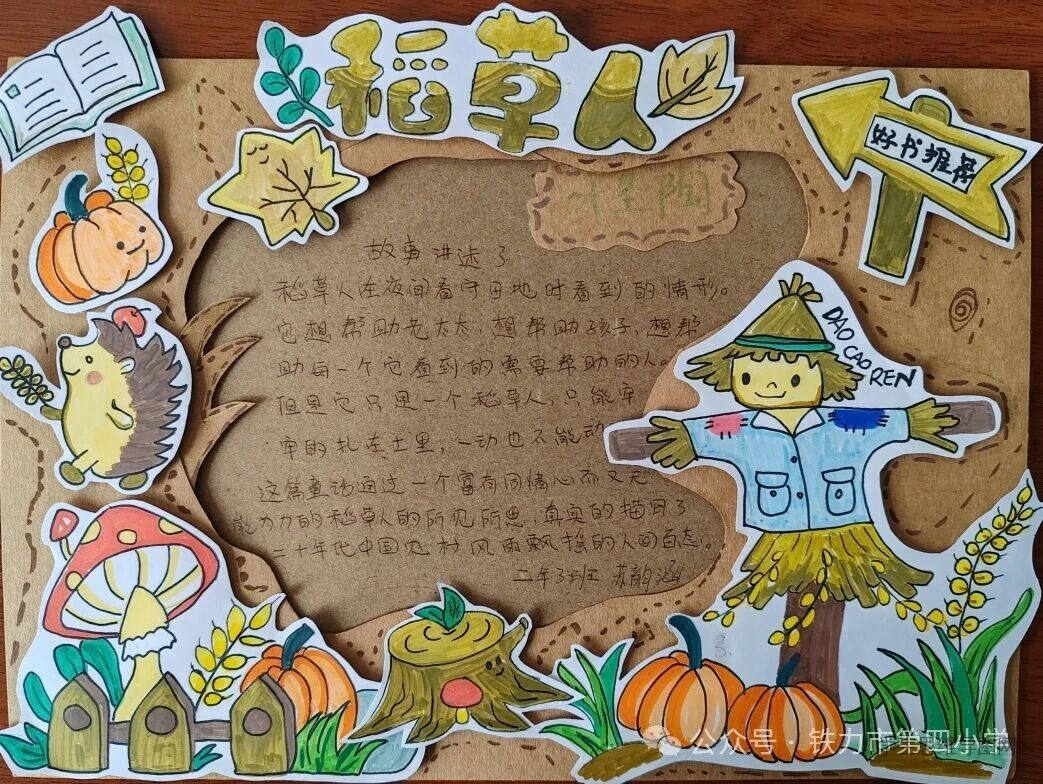 稻草人
好书推荐
叶圣陶
故事讲述了
稻草人在夜间看守田地时看到的情形。
它想帮助老太太，想帮助孩子，想帮
助每一个它看到的需要帮助的人。
但是它只是一个稻草人，只能牢
牢的扎在土里，一动也不能动
这篇童话通过一个富有同情心而又无
能为力的稻草人的所见所思，真实的描写了
二十年代中国农村风雨飘摇的人间百态。
二年3班 苏韵涵
DAO CAO REN
公众号·铁力市第四小学